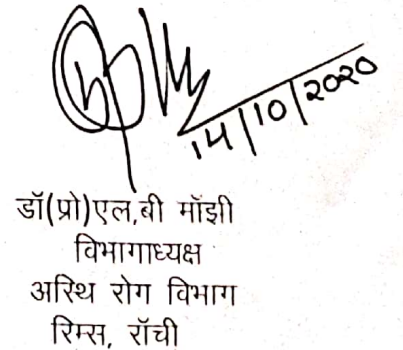 14/10/2020
डॉ(प्रो)एल,बी मॉझी
विभागाध्यक्ष
अस्थि रोग विभाग
रिम्स, रॉची